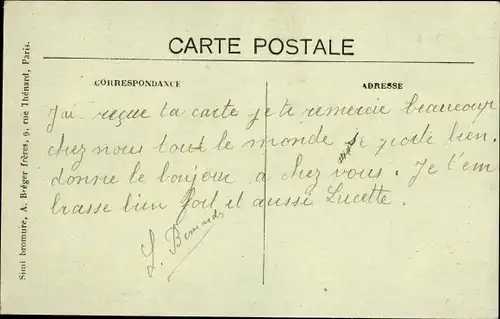 CARTE POSTALE
CORRESPONDANCE
ADRESSE
J'ai reçue ta carte je te remercie beaucoup
chez nous tout le monde se porte bien.
donne le bonjour a chez vous. Je t'em
brasse bien fort et aussi Lucette.
L. Bernard
Simi bromure, A. Bréger frères, 9, rue Thénard, Paris.